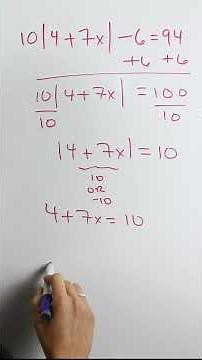 10|4+7x|-6=94
+6 +6
10|4+7x| = 100
10 10
|4+7x| = 10
10
OR
-10
4+7x=10